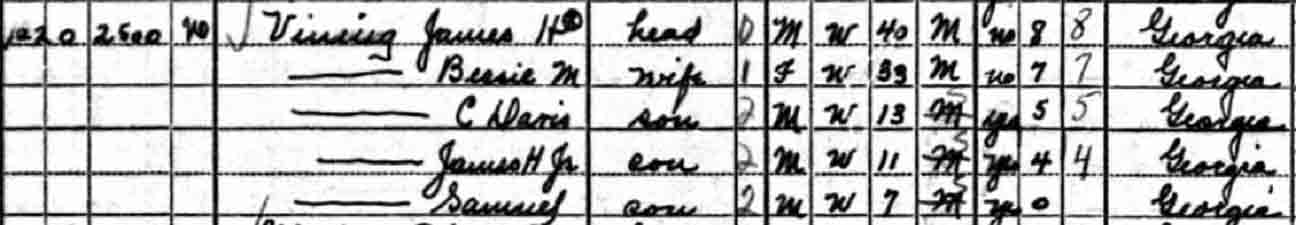 0 2500 no Vining James H head 0 M W 40 M no 8 8 Georgia
Bessie M wife 1 F W 33 M no 7 7 Georgia
C Davis son 2 M W 13 M S yes 5 5 Georgia
James H Jr son 2 M W 11 M S yes 4 4 Georgia
Samuel son 2 M W 7 M S yes 0 Georgia